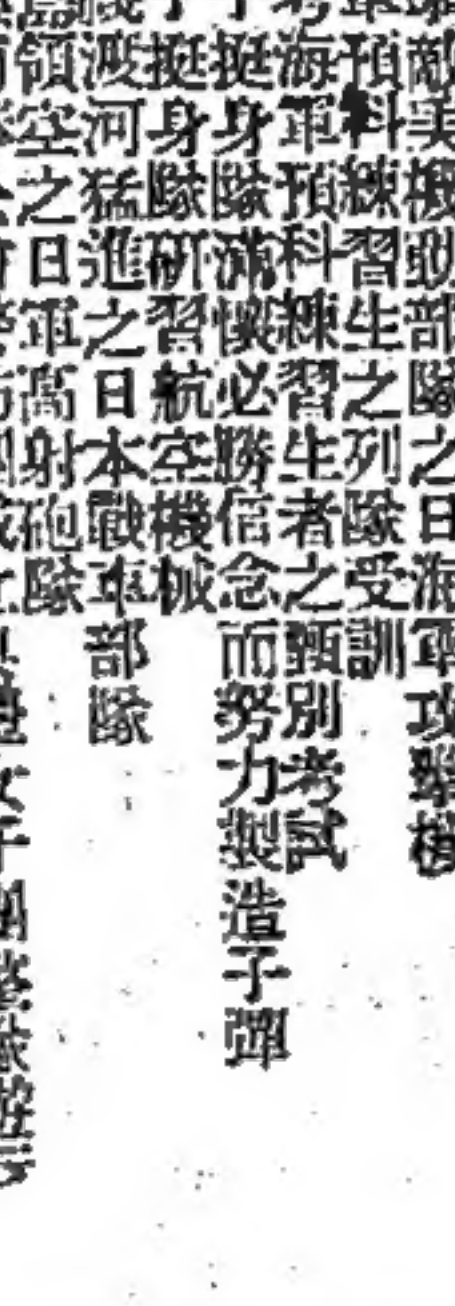 敵美機動部隊之日海軍攻擊機
軍預科練習生之列隊受訓
考海軍預科練習生者之甄別考試
子挺身隊滿懷必勝信念而努力製造子彈
子挺身隊研習航空機械
渡河猛進之日本戰車部隊
島領空之日軍高射砲隊